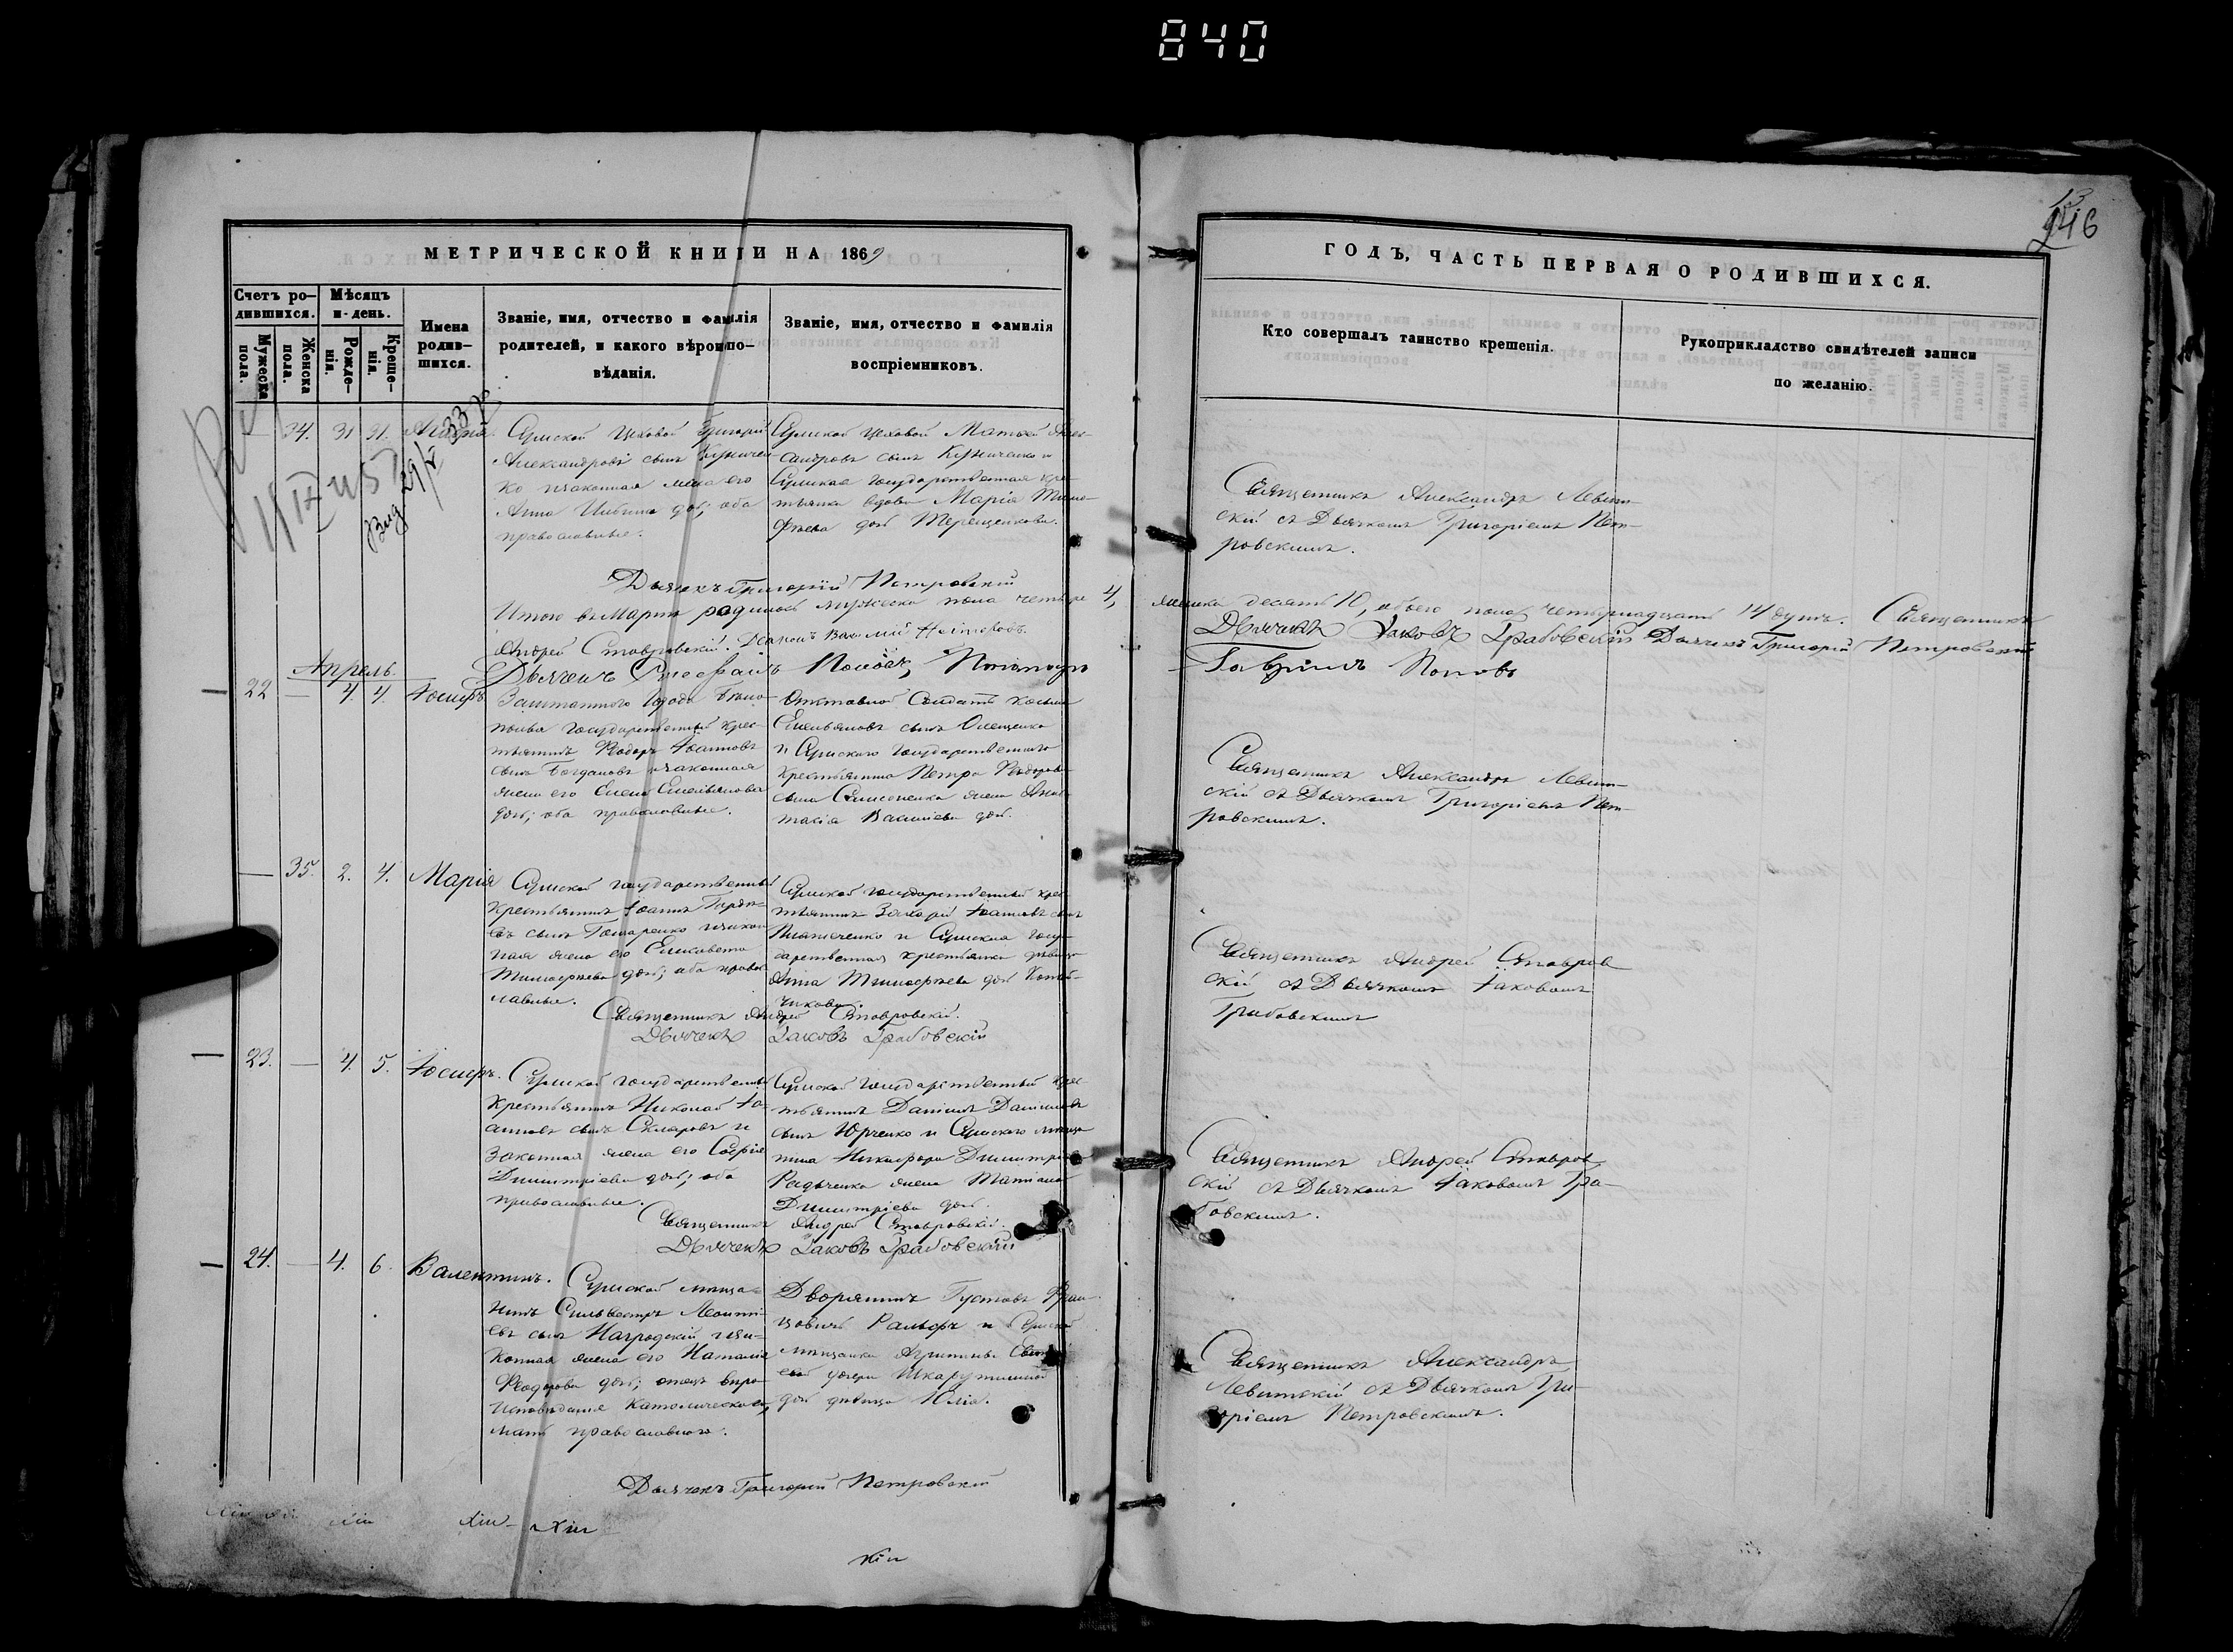 840
13
246
МЕТРИЧЕСКОЙ КНИГИ НА 1869
ГОДЪ, ЧАСТЬ ПЕРВАЯ О РОДИВШИХСЯ.
Счетъ ро-
дившихся.
Мужеска
пола.
Женска
пола.
Мѣсяцъ
и день.
Рожде-
нія.
Креще-
нія.
Имена
родив-
шихся.
Званіе, имя, отчество и фамилія
родителей, и какого вѣроиспо-
вѣданія.
Званіе, имя, отчество и фамилія
воспріемниковъ.
Кто совершалъ таинство крешенія.
Рукоприкладство свидѣтелей записи
по желанію.
— 34. 31 31.
Сумской цеховой Григорій
Александровъ сынъ
законная жена его
Анна дочь; оба
православные.
Сумской цеховой Матвей Алек-
сандровъ сынъ и
Сумская государственная кре-
стьянка вдова Марія Тимо-
феева дочь Терещенкова.
Священникъ Александръ Левит-
скій съ Дьячкомъ Григоріемъ Пет-
ровскимъ.
Дьячекъ Григорій Петровскій
Итого въ Мартѣ родилось мужеска пола четыре 4, женска десять 10, обоего пола четырнадцать 14 душъ. Священникъ
Андрей Ставровскій. Діаконъ Василій Несторовъ. Дьячекъ Іаковъ Грабовскій Дьячекъ Григорій Петровскій
Дьячекъ Стефанъ Поповъ, Пономарь Гавріилъ Поповъ
Апрель.
22 — 4. 4. Іосифъ.
Заштатнаго города Бѣло-
полья государственный крес-
тьянинъ Ѳеодоръ Іоанновъ
сынъ Богдановъ и законная
жена его Елена Емельянова
дочь; оба православные.
Отставной Солдатъ Косьма
Емельяновъ сынъ
и Сумскаго государственнаго
крестьянина Петра Ѳеодорова
сына Симоненка жена Анас-
тасія Василіева дочь.
Священникъ Александръ Левит-
скій съ Дьячкомъ Григоріемъ Пет-
ровскимъ.
— 35. 2. 4. Марія
Сумской государственный
крестьянинъ Іоаннъ
сынъ Гончаренко и закон-
ная жена его Елисавета
Тимоѳеева дочь; оба право-
славные.
Сумской государственный крес-
тьянинъ Захарій Іоанновъ сынъ
и Сумская госу-
дарственная крестьянка дѣвица
Анна Тимоѳеева дочь
Священникъ Андрей Ставров-
скій съ Дьячкомъ Іаковомъ
Грабовскимъ
Священникъ Андрей Ставровскій.
Дьячекъ Іаковъ Грабовскій
23. — 4. 5. Іосифъ.
Сумской государственный
крестьянинъ Николай Іо-
анновъ сынъ Скляровъ и
законная жена его Софія
Димитріева дочь; оба
православные.
Сумской государственный крес-
тьянинъ Даніилъ Даніиловъ
сынъ Юрченко и Сумскаго мѣща-
нина Никифора Димитріева
Радченка жена Татіана
Димитріева дочь.
Священникъ Андрей Ставров-
скій съ Дьячкомъ Іаковомъ Гра-
бовскимъ.
Священникъ Андрей Ставровскій.
Дьячекъ Іаковъ Грабовскій
24. — 4. 6. Валентинъ.
Сумской мѣща-
нинъ Сильвестръ Леонті-
евъ сынъ Нагродскій и за-
конная жена его Наталія
Ѳеодорова дочь; отецъ вѣро-
исповѣданія Католическаго,
мать православнаго.
Дворянинъ Густавъ Фран-
цовичъ Ральфъ и Сумской
мѣщанки Агрипины
дочери
дочь дѣвица Юлія.
Священникъ Александръ
Левитскій съ Дьячкомъ Гри-
горіемъ Петровскимъ.
Дьячекъ Григорій Петровскій